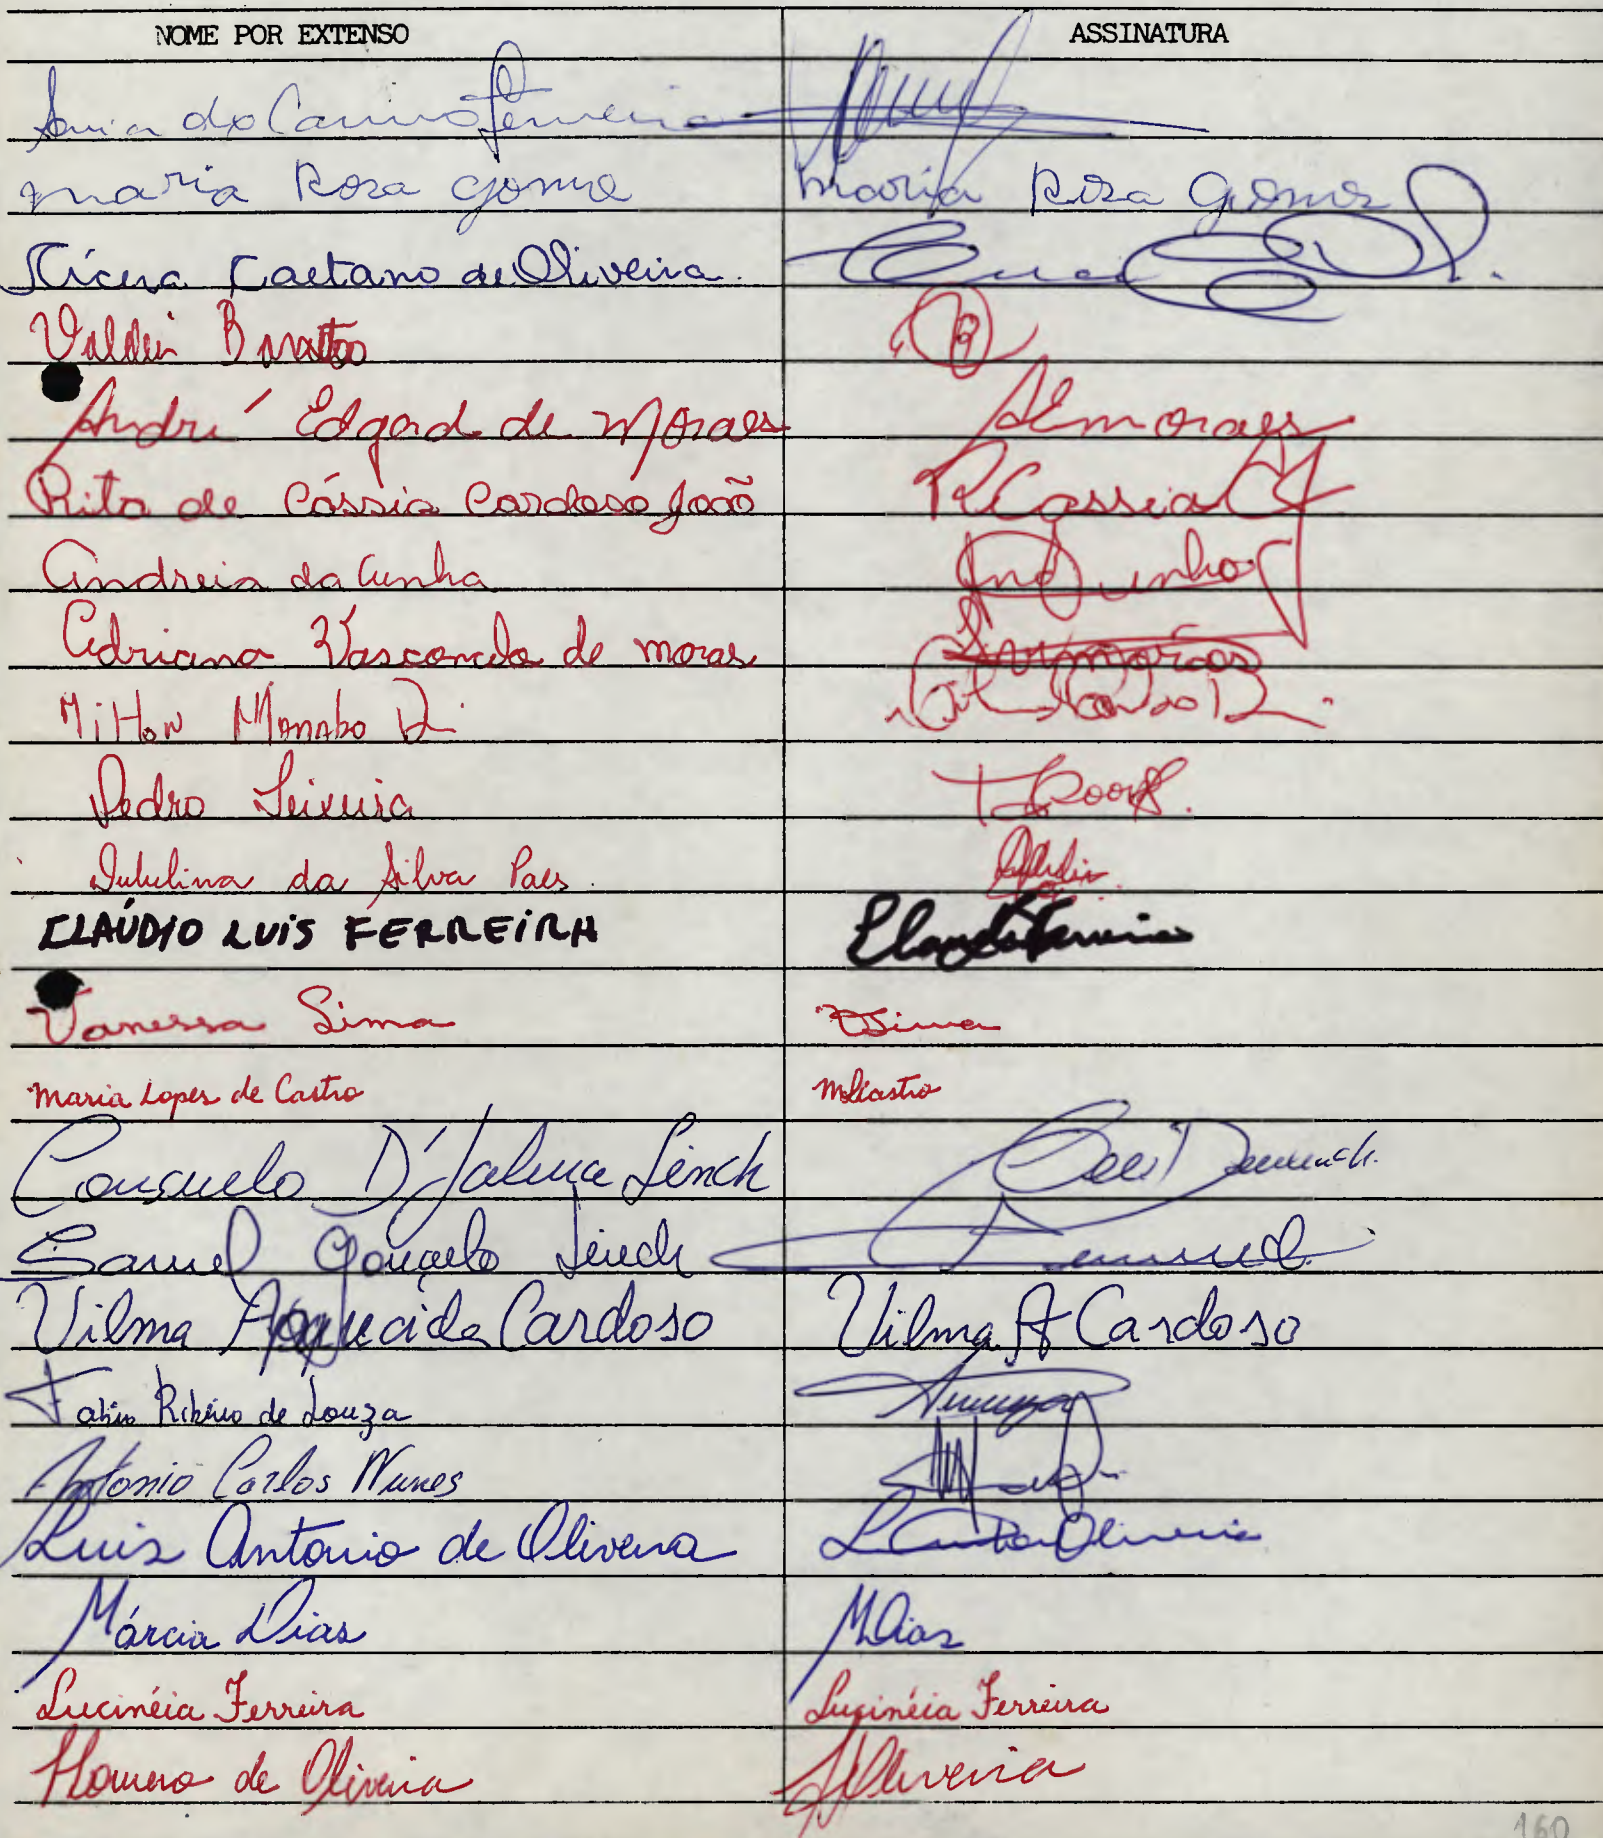 NOME POR EXTENSO ASSINATURA
do Carmo Ferreira
maria Rosa Gome maria Rosa Gomes
Cícera Caetano de Oliveira.
Valdeir
André Edgard de Moraes AEmoraes
Rita de Cássia Cardoso João RCassia
Andreia da Cunha And unha
Adriana Vasconcelo de moras
Milton Manabo
Pedro Teixeira
da Silva Paes.
CLAÚDIO LUIS FERREIRA Claudio Ferreira
Vanessa Lima VLima
Maria Lopes de Castro MLCastro
Consuelo D'Jalma Linch
Samuel Gonçalo Linch Samuel
Vilma Aparecida Cardoso Vilma A Cardoso
Fabio Ribeiro de Souza
Antonio Carlos Nunes
Luis Antonio de Oliveira L Oliveira
Márcia Dias MDias
Lucinéia Ferreira Lucinéia Ferreira
Homero de Oliveira HOliveira
160